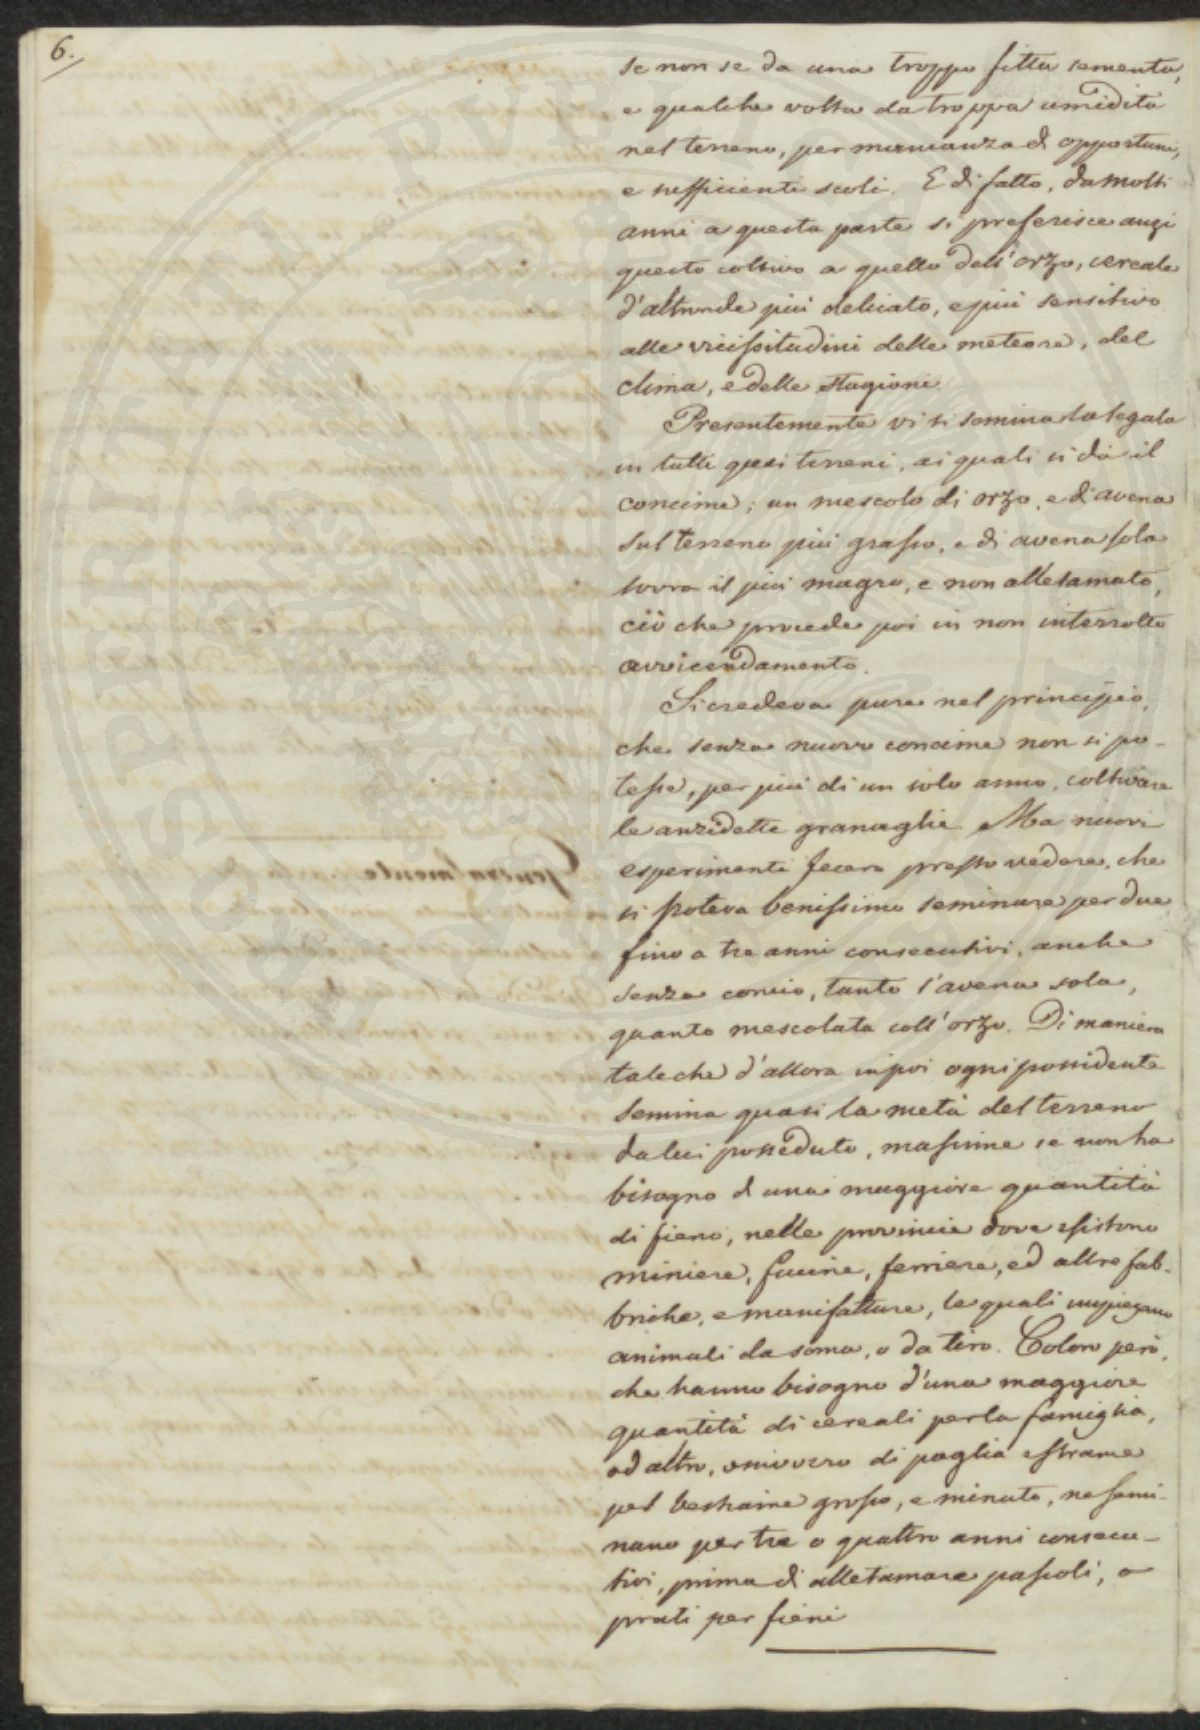 6.
se non se da una troppo fitta sementa,
e qualche volta da troppa umidità
nel terreno, per mancanza di opportuni,
e sufficienti scoli. E di fatto, da molti
anni a questa parte si preferisce anzi
questo coltivo a quello dell'orzo, cereale
d'altronde più delicato, e più sensitivo
alle vicissitudini delle meteore, del
clima, e delle stagioni.
Presentemente vi si semina la segala
in tutti quei terreni, ai quali si dà il
concime; un mescolo di orzo, e di avena
sul terreno più grasso, e di avena sola
sovra il più magro, e non alletamato,
ciò che procede poi in non interrotto
avvicendamento.
Si credeva pure nel principio,
che senza nuovo concime non si po-
tesse, per più di un solo anno, coltivare
le anzidette granaglie. Ma nuovi
esperimenti fecero presto vedere, che
si poteva benissimo seminare per due
fino a tre anni consecutivi, anche
senza concio, tanto l'avena sola,
quanto mescolata coll'orzo. Di maniera
tale che d'allora in poi ogni possidente
semina quasi la metà del terreno
da lui posseduto, massime se non ha
bisogno d una maggiore quantità
di fieno, nelle provincie dove esistono
miniere, fucine, ferriere, ed altre fab-
briche, e manifatture, le quali impiegano
animali da soma, o da tiro. Coloro però,
che hanno bisogno d'una maggiore
quantità di cereali per la famiglia,
od altro, ovvero di paglia e strame
pel bestiame grosso, e minuto, ne semi-
nano per tre o quattro anni consecu-
tivi, prima di alletamare pascoli, o
prati per fieni